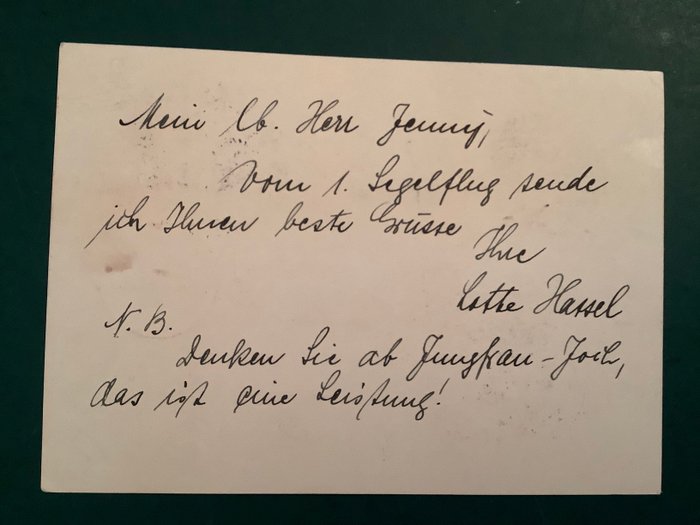 Mein lb. Herr Jenny,
Vom 1. Segelflug sende
ich Ihnen beste Grüsse
Ihre
Lotte Hassel
N. B.
Denken Sie ab Jungfrau-Joch,
das ist eine Leistung!